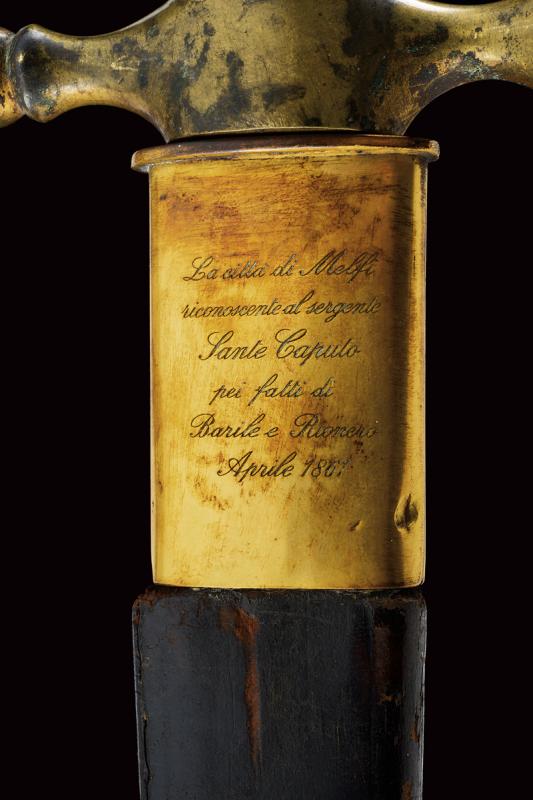 La città di Melfi
riconoscente al sergente
Sante Caputo
pei fatti di
Barile e Rionero
Aprile 1861